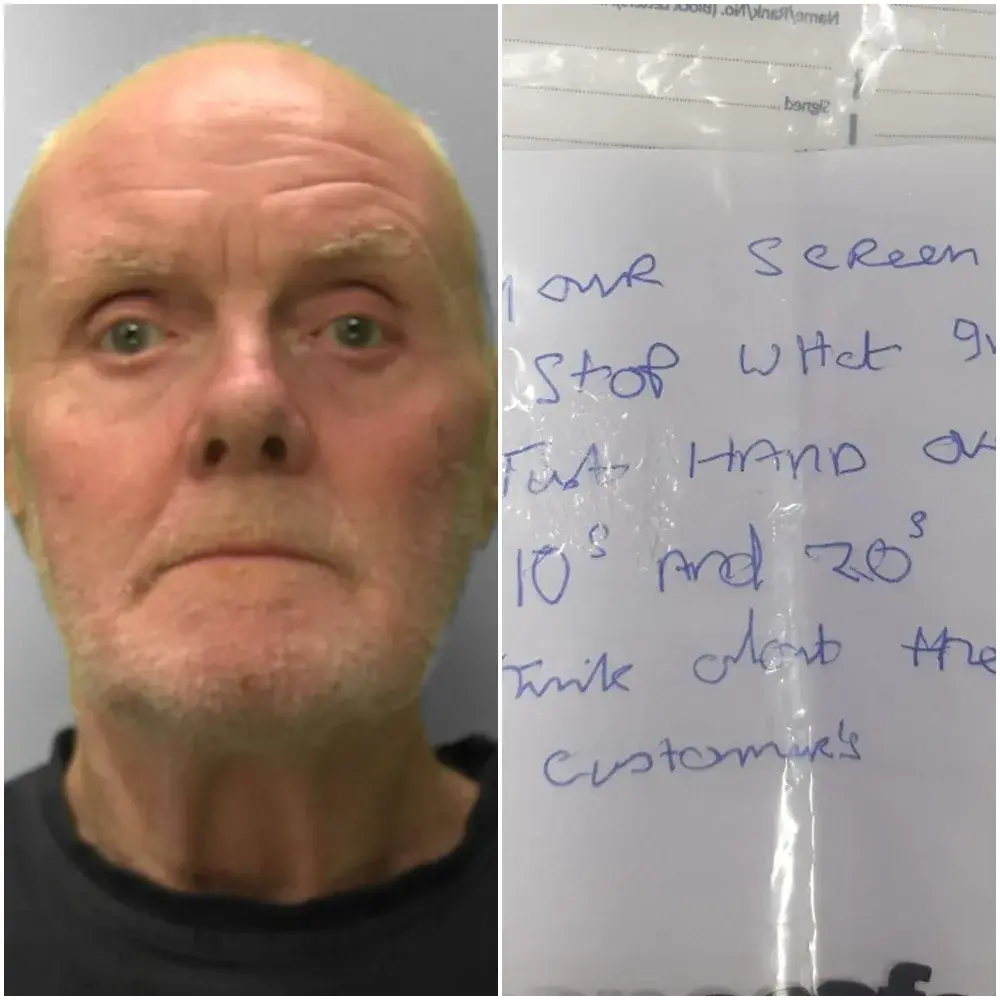 Name/Rank/No. (Block Letters)
Signed
your screen
Stop what
Just HAND
10s And 20s
Tink about the
customer's